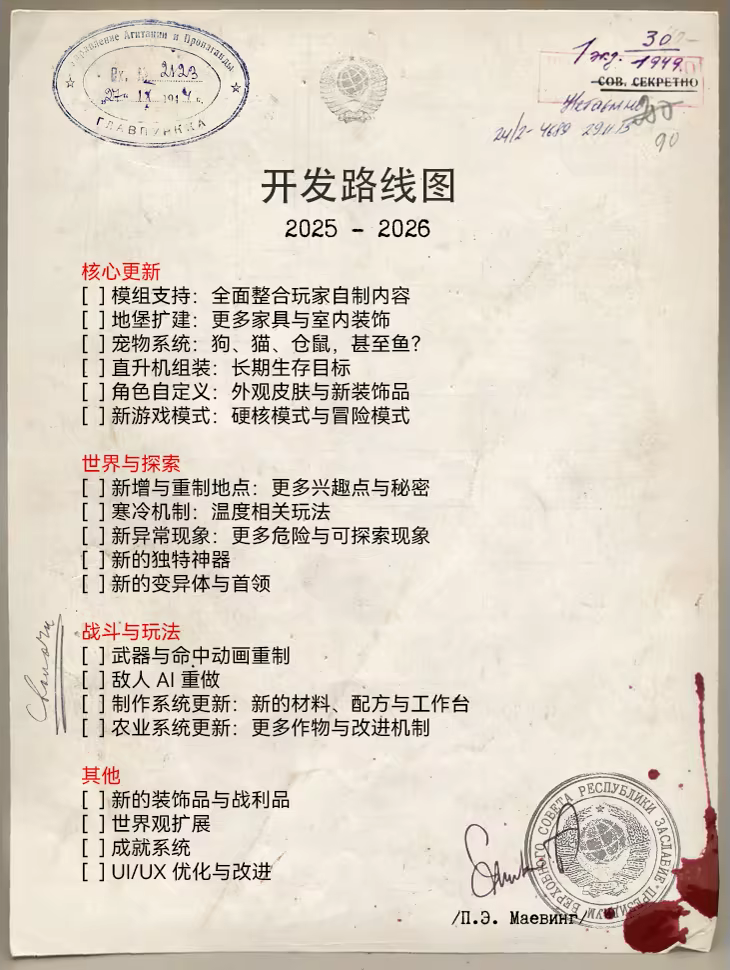 Управление Агитации и Пропаганды
Вх. № 2123
"27" IX 194
ГЛАВПУРККА
30
1 экз.
1949.
СОВ. СЕКРЕТНО
24/2-4689
90
开发路线图
2025 - 2026
核心更新
[ ] 模组支持：全面整合玩家自制内容
[ ] 地堡扩建：更多家具与室内装饰
[ ] 宠物系统：狗、猫、仓鼠，甚至鱼？
[ ] 直升机组装：长期生存目标
[ ] 角色自定义：外观皮肤与新装饰品
[ ] 新游戏模式：硬核模式与冒险模式
世界与探索
[ ] 新增与重制地点：更多兴趣点与秘密
[ ] 寒冷机制：温度相关玩法
[ ] 新异常现象：更多危险与可探索现象
[ ] 新的独特神器
[ ] 新的变异体与首领
战斗与玩法
[ ] 武器与命中动画重制
[ ] 敌人 AI 重做
[ ] 制作系统更新：新的材料、配方与工作台
[ ] 农业系统更新：更多作物与改进机制
其他
[ ] 新的装饰品与战利品
[ ] 世界观扩展
[ ] 成就系统
[ ] UI/UX 优化与改进
ПРЕЗИДИУМ ВЕРХОВНОГО СОВЕТА РЕСПУБЛИКИ ЗАСЛАВИЕ
/П.Э. Маевинг/